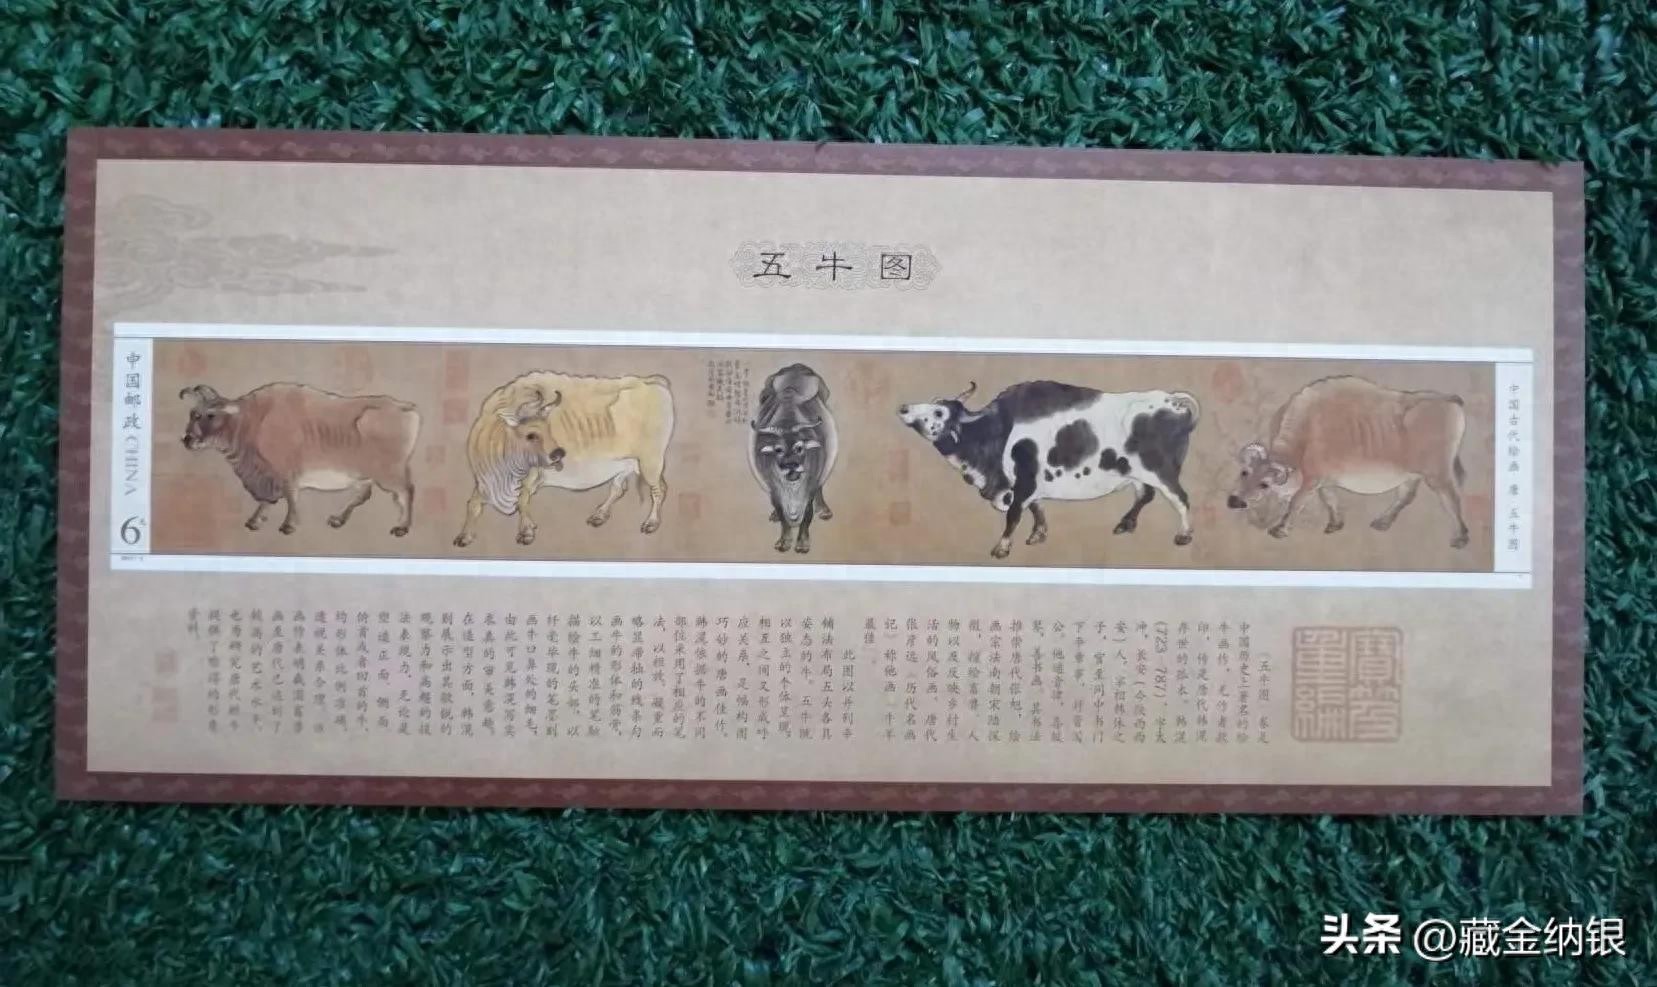 五牛图
中国邮政 CHINA
6元
中国古代绘画·唐·五牛图
《五牛图》卷是
中国历史上著名的绘
牛画作，无作者款
印，传是唐代韩滉
存世的孤本。韩滉
(723—787)，字太
冲，长安（今陕西西
安）人，宰相韩休之
子，官至同中书门
下平章事，封晋国
公。他通音律，喜鼓
琴，善书画，其书法
推崇唐代张旭，绘
画宗法南朝宋陆探
微，擅绘畜兽、人
物以及反映乡村生
活的风俗画，唐代
张彦远《历代名画
记》称他画“牛羊
最佳”。
此图以并列平
铺法布局五头各具
姿态的牛。五牛既
以独立的个体呈现，
相互之间又形成呼
应关系，是幅构图
巧妙的唐画佳作。
韩滉依据牛的不同
部位采用了相应的笔
法，以粗放、凝重而
略显滞拙的线条勾
画牛的形体和筋骨，
以工细精准的笔触
描绘牛的头部，以
纤毫毕现的笔墨刻
画牛口鼻处的细毛，
由此可见韩滉写实
求真的审美意趣。
在造型方面，韩滉
则展示出其敏锐的
观察力和高超的技
法表现力，无论是
塑造正面、侧面
的首或者回首的牛，
均形体比例准确，
透视关系合理。该
画作表明我国畜兽
画至唐代已达到了
较高的艺术水平，
也为研究唐代耕牛
提供了难得的形象
资料。
头条 @藏金纳银